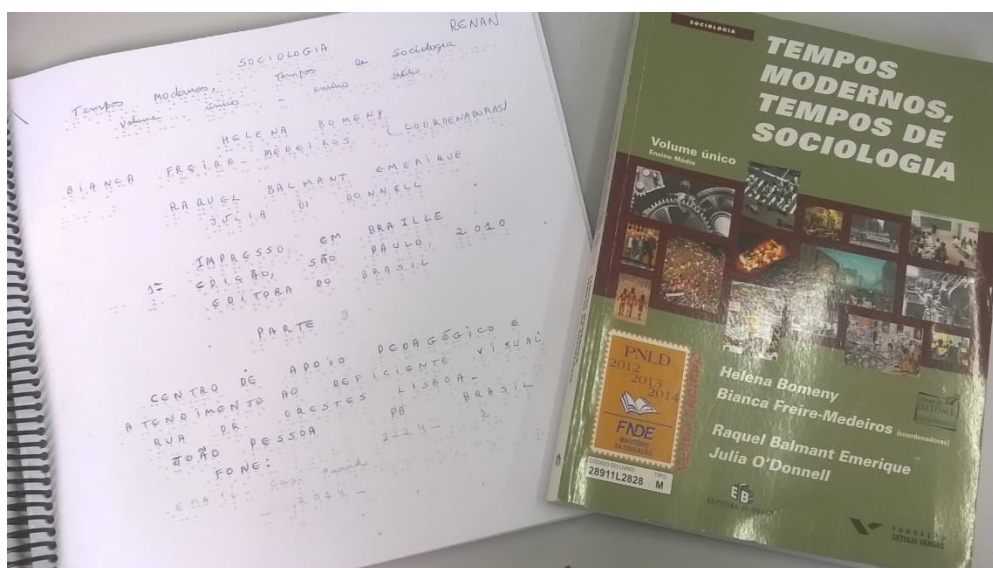 RENAN
SOCIOLOGIA
Tempos Modernos, Tempos de Sociologia
Volume único - ensino médio
HELENA BOMENY
BIANCA FREIRE-MEDEIROS (COORDENADORAS)
RAQUEL BALMANT EMERIQUE
JULIA O'DONNELL
IMPRESSO EM BRAILLE
1ª EDIÇÃO, SÃO PAULO, 2010
EDITORA DO BRASIL
PARTE 3
CENTRO DE APOIO PEDAGÓGICO E
ATENDIMENTO AO DEFICIENTE VISUAL
RUA DR. ORESTES LISBOA -
JOÃO PESSOA PB BRASIL
FONE: 3224-
SOCIOLOGIA
TEMPOS
MODERNOS,
TEMPOS DE
SOCIOLOGIA
Volume único
Ensino Médio
PNLD
2012
2013
2014
FNDE
MINISTÉRIO
DA EDUCAÇÃO
VENDA PROIBIDA
CÓDIGO DO LIVRO
28911L2828
TIPO
M
Helena Bomeny
Bianca Freire-Medeiros (coordenadoras)
Raquel Balmant Emerique
Julia O'Donnell
EB
EDITORA DO BRASIL
FUNDAÇÃO
GETULIO VARGAS